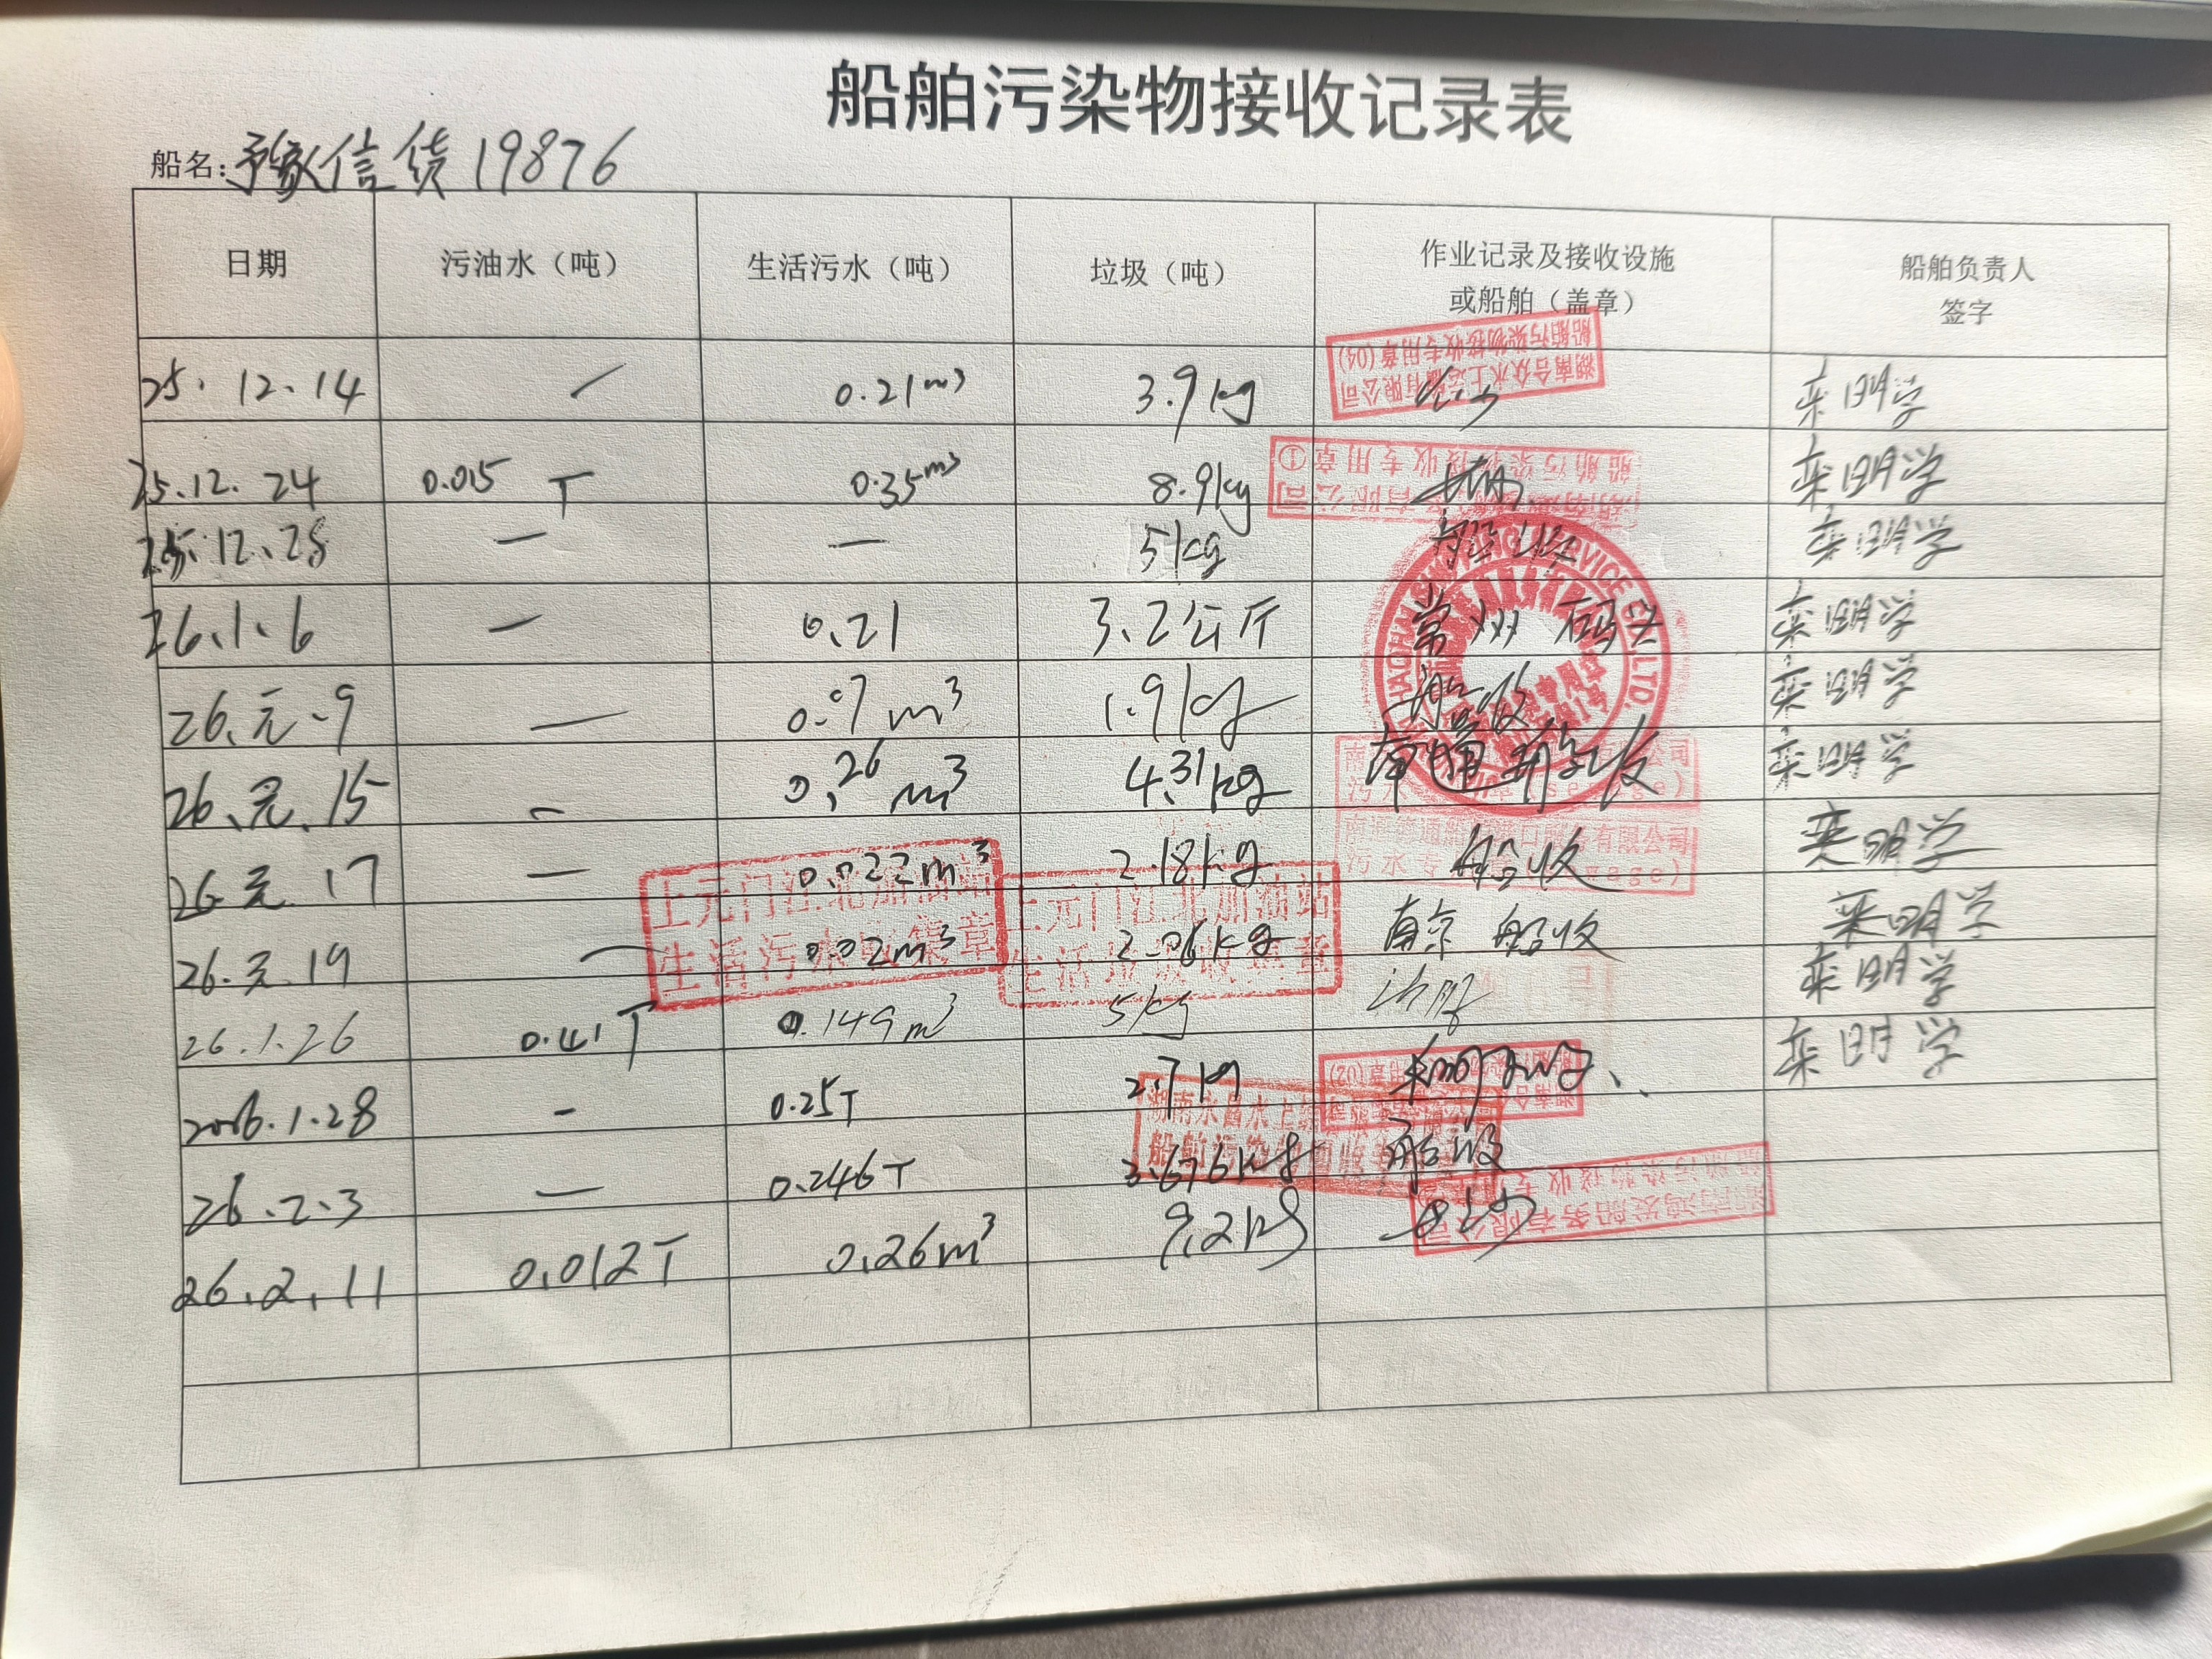 船舶污染物接收记录表
船名：豫信货19876
日期 污油水（吨） 生活污水（吨） 垃圾（吨） 作业记录及接收设施或船舶（盖章） 船舶负责人签字
25.12.14 / 0.21m³ 3.9kg 栾明学
湖南合众水上运输有限公司
船舶污染物接收专用章(04)
25.12.24 0.015 T 0.35m³ 8.9kg 栾明学
船舶污染物接收专用章①
25.12.28 — — 5kg 船收 栾明学
26.1.6 — 0.21 3.2公斤 常州码头 栾明学
SHIPPING SERVICE LTD.
26.元.9 — 0.7m³ 1.9kg 船收 栾明学
26.元.15 — 0.26m³ 4.31kg 南通 船收 栾明学
26.元.17 — 0.022m³ 2.18kg 船收 栾明学
上元门江北加油站
生活污水收集章
上元门江北加油站
生活垃圾收集章
26.元.19 — 0.02m³ 2.06kg 南京 船收 栾明学
26.1.26 0.41T 0.149m³ 5kg 栾明学
2026.1.28 - 0.25T 2.7kg 栾明学
26.2.3 — 0.246T 3.676kg 船收
26.2.11 0.012T 0.26m³ 9.2kg